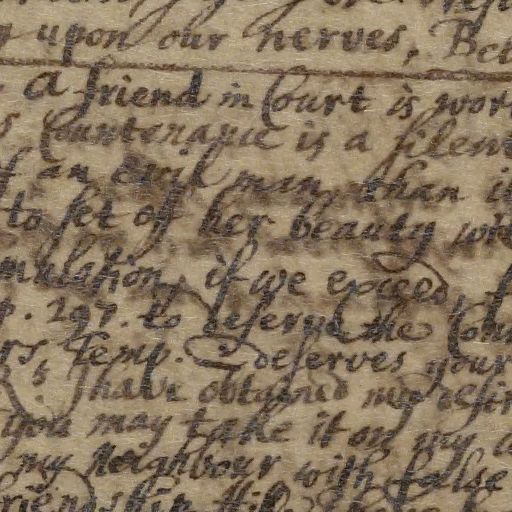 upon our nerves, Bet
A friend in Court is wor
Countenance is a silent
an evil man, than i
to set off her beauty wh
mulation, if we exceed,
p. 297. to deserve the Cou
rs, Temp. deserves your
I have obtained my desir
you may take it on my
my Neighbour with false
riendship